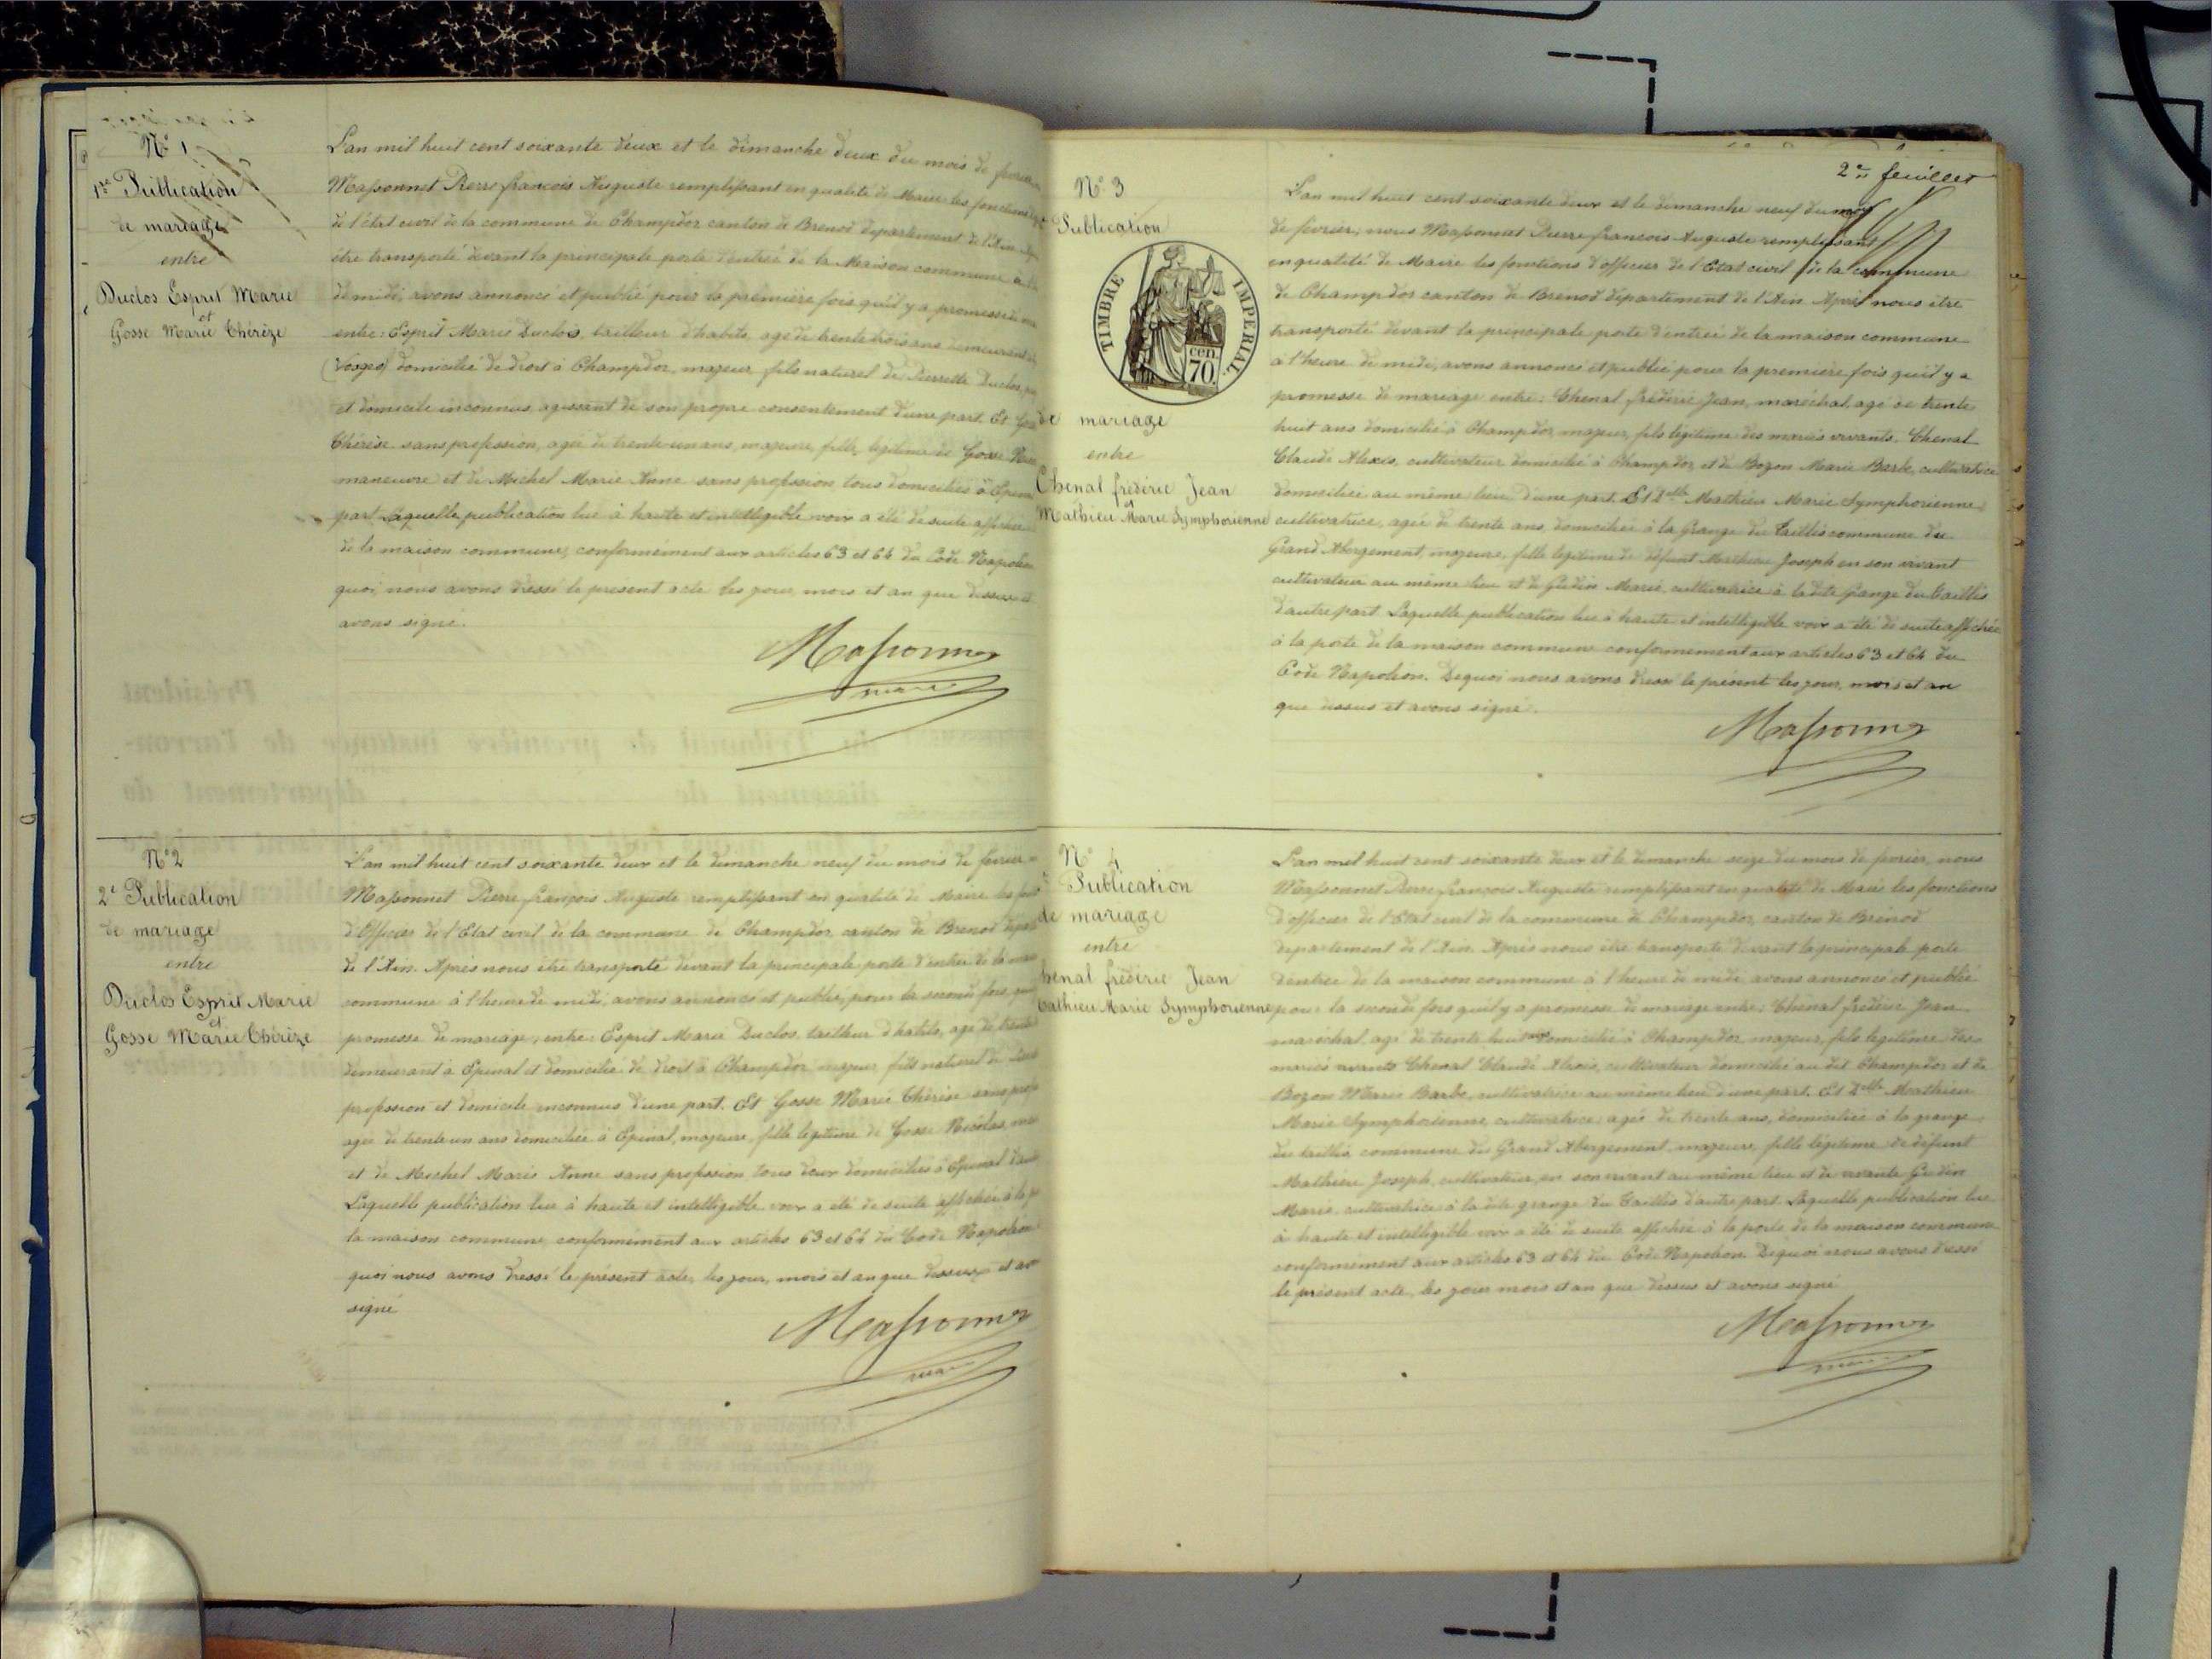 N° 1
1re Publication
de mariage
entre
Duclos Esprit Marie
et
Gosse Marie Thérèze
L'an mil huit cent soixante deux et le dimanche deux du mois de
Massonnet Pierre françois Auguste remplissant en qualité de Maire les fonctions
de l'état civil de la commune de Champdor canton de Brenod département de l'Ain
être transporté devant la principale porte d'entrée de la Maison commune à
de midi, avons annoncé et publié pour la première fois qu'il y a promesse de
entre: Esprit Marie Duclos, tailleur d'habits, agé de trente trois ans demeurant
(Vosges) domicilié de droit à Champdor, majeur, fils naturel de Pierrette Duclos,
et domicile inconnus, agissant de son propre consentement d'une part. Et
Thérèse sans profession, agée de trente-un ans, majeure, fille légitime de Gosse
manœuvre et de Michel Marie Anne sans profession tous domiciliés à
part. Laquelle publication lue à haute et intelligible voix a été de suite affichée
de la maison commune, conformément aux articles 63 et 64 du Code
quoi, nous avons dressé le présent acte les jour, mois et an que dessus et
avons signé.
Massonnet
maire
N° 2
2e Publication
de mariage
entre
Duclos Esprit Marie
et
Gosse Marie Thérèze
L'an mil huit cent soixante deux et le dimanche neuf du mois de fevrier
Massonnet Pierre françois Auguste remplissant en qualité de Maire les
d'Officier de l'Etat civil de la commune de Champdor canton de Brenod
de l'Ain. Après nous être transporté devant la principale porte d'entrée de la
commune à l'heure de midi, avons annoncé et publié, pour la seconde fois,
promesse de mariage, entre: Esprit Marie Duclos, tailleur d'habits, agé de trente
demeurant à Epinal et domicilié de droit à Champdor majeur fils naturel de
profession et domicile inconnus d'une part. Et Gosse Marie Thérèse sans
agée de trente un ans domiciliée à Epinal, majeure, fille légitime de Gosse Nicolas,
et de Michel Marie Anne sans profession tous deux domiciliés à Epinal
Laquelle publication lue à haute et intelligible voix a été de suite affichée à la
la maison commune conformément aux articles 63 et 64 du Code Napoléon
quoi nous avons dressé le présent acte, les jour, mois et an que dessus et
signé
Massonnet
maire
2e feuillet
N° 3
Publication
TIMBRE IMPERIAL
cen.
70.
de mariage
entre
Chenal frédéric Jean
et
Mathieu Marie Symphorienne
L'an mil huit cent soixante deux et le dimanche neuf du mois
de fevrier, nous Massonnet Pierre françois Auguste remplissant
en qualité de Maire les fonctions d'officier de l'Etat civil de la commune
de Champdor canton de Brenod département de l'Ain. Après nous être
transporté devant la principale porte d'entrée de la maison commune
à l'heure de midi, avons annoncé et publié pour la première fois qu'il y a
promesse de mariage entre: Chenal frédéric Jean, maréchal, agé de trente
huit ans domicilié à Champdor, majeur, fils légitime des mariés vivants. Chenal
Claude Alexis, cultivateur domicilié à Champdor et de Bozon Marie Barbe, cultivatrice
domiciliée au même lieu d'une part. Et Delle Mathieu Marie Symphorienne
cultivatrice, agée de trente ans, domiciliée à la Grange du Taillis commune du
Grand Abergement, majeure, fille legitime de défunt Mathieu Joseph en son vivant
cultivateur au même lieu et de Gudin Marie, cultivatrice à ladite Grange du Taillis
d'autre part. Laquelle publication lue à haute et intelligible voix a été de suite affichée
à la porte de la maison commune conformement aux articles 63 et 64 du
Code Napoléon. De quoi nous avons dressé le présent les jour, mois et an
que dessus et avons signé.
Massonnet
N° 4
Publication
de mariage
entre
Chenal frédéric Jean
Mathieu Marie Symphorienne
L'an mil huit cent soixante deux et le dimanche seize du mois de fevrier, nous
Massonnet Pierre françois Auguste remplissant en qualité de Maire les fonctions
d'officier de l'Etat civil de la commune de Champdor, canton de Brénod
departement de l'Ain. Après nous être transporté devant la principale porte
d'entrée de la maison commune à l'heure de midi avons annoncé et publié
pour la seconde fois qu'il y a promesse de mariage entre: Chenal frédéric Jean
maréchal, agé de trente huit ans domicilié à Champdor majeur, fils legitime des
mariés vivants Chenal Claude Alexis, cultivateur domicilié au dit Champdor et de
Bozon Marie Barbe, cultivatrice au même lieu d'une part. Et Delle Mathieu
Marie Symphorienne, cultivatrice, agée de trente ans, domiciliée à la grange
du taillis, commune du Grand Abergement, majeure, fille légitime de défunt
Mathieu Joseph, cultivateur, en son vivant au même lieu et de vivante Gudin
Marie cultivatrice à la dite grange du Taillis d'autre part. Laquelle publication lue
à haute et intelligible voix a été de suite affichée à la porte de la maison commune
conformément aux articles 63 et 64 du Code Napoléon. De quoi nous avons dressé
le présent acte, les jour mois et an que dessus et avons signé
Massonnet
maire